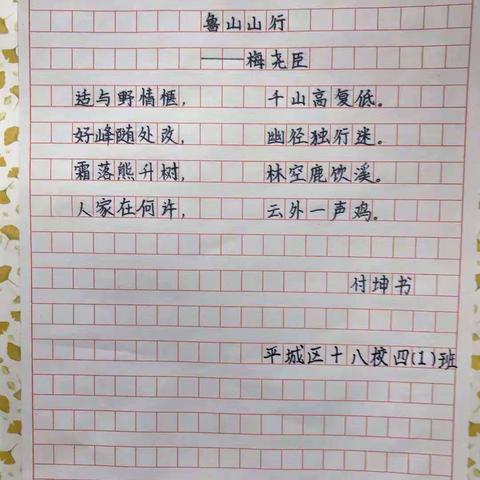 鲁山山行
——梅尧臣
适与野情惬， 千山高复低。
好峰随处改， 幽径独行迷。
霜落熊升树， 林空鹿饮溪。
人家在何许， 云外一声鸡。
付坤书
平城区十八校四(1)班